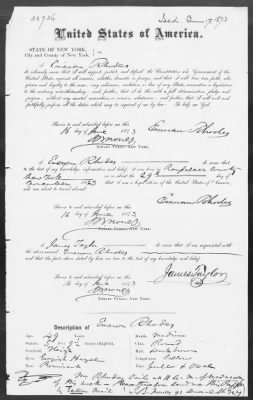 22736 Issd. June 17 1873
United States of America.
STATE OF NEW YORK,
City and County of New York
I, Emerson Rhodes
do solemnly swear that I will support, protect, and defend the Constitution and Government of the
United States against all enemies, whether domestic or foreign; and that I will bear true faith, alle-
giance and loyalty to the same, any ordinance, resolution, or law of any State, convention or legislature
to the contrary notwithstanding; and further, that I do this with a full determination, pledge and
purpose, without any mental reservation or evasion whatsoever; and further, that I will well and
faithfully perform all the duties which may be required of me by law. So help me God.
Sworn to and subscribed before me this
16 day of June 1873
Emerson Rhodes
NOTARY PUBLIC, NEW YORK.
I, Emerson Rhodes do swear that
to the best of my knowledge, information and belief, I was born in Rensselaer County
New York on the 29th day of
November 1823 that I am a loyal citizen of the United States of America
Emerson Rhodes
Sworn to and subscribed before me
16 day of June 1873
NOTARY PUBLIC, NEW YORK.
I, James Taylor do swear that I am acquainted with
the above-named Emerson Rhodes
and that the facts above stated by him are true to the best of my knowledge and belief.
Sworn to and subscribed before me
16 day of June 1873
James Taylor
NOTARY PUBLIC, NEW YORK.
Description of Emerson Rhodes
Age, 49
Mouth, Medium
Stature,
Chin, Round
Forehead, High
Hair,
Eyes, Hazel
Complexion,
Nose, Prominent
Face, Full & Oval
Mr Rhodes sails at